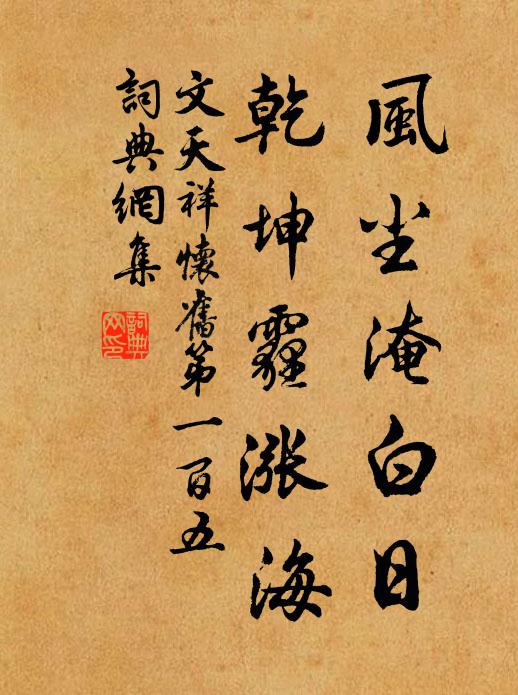 風尘淹白日
乾坤霾漲海
文天祥懷舊第一百五
詞典網集
詞典网印